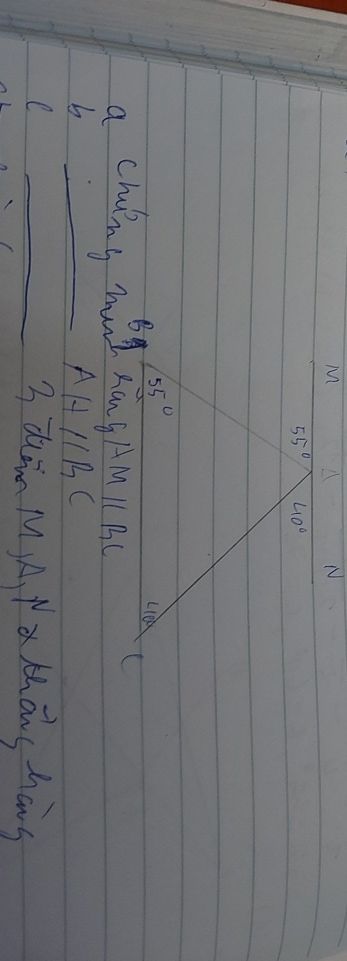 M A N
55° 40°
B 55° 40° C
a chứng minh rằng AM // BC
b ——— AH // BC
c ——— 3 điểm M, A, N thẳng hàng